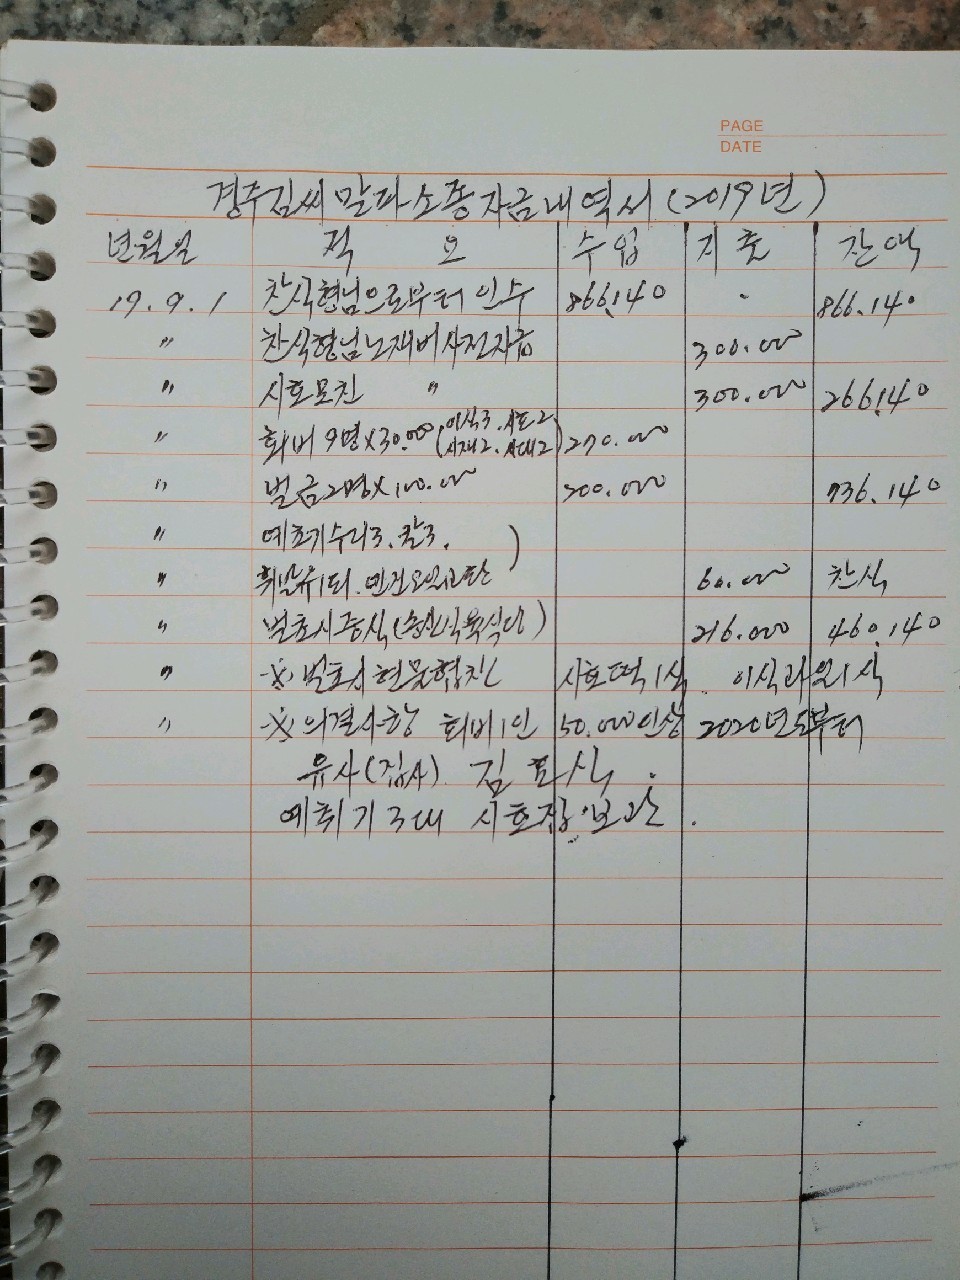 PAGE
DATE
경주김씨 말파소종 자금내역서 (2019년)
년월일 적 요 수입 지출 잔액
19.9.1 찬식형님으로부터 인수 866.140 - 866.140
" 찬식형님노재비사전자금 300.000
" 시호모친 " 300.000 266.140
" 회비 9명×30.000 (이식3. 시호2 시재2. 시대2) 270.000
" 벌금2명×100.000 200.000 736.140
" 예초기수리3. 칼3. )
" 휘발유1되. 60.000 찬식
" 벌초시중식( ) 216.000 460.140
" ※ 벌초시 현물협찬 시호떡1식 이식과일1식
" ※ 의결사항 회비1인 50.000인상 2020년도부터
유사(집사) 김 식.
예취기 3대 시호집 보관.